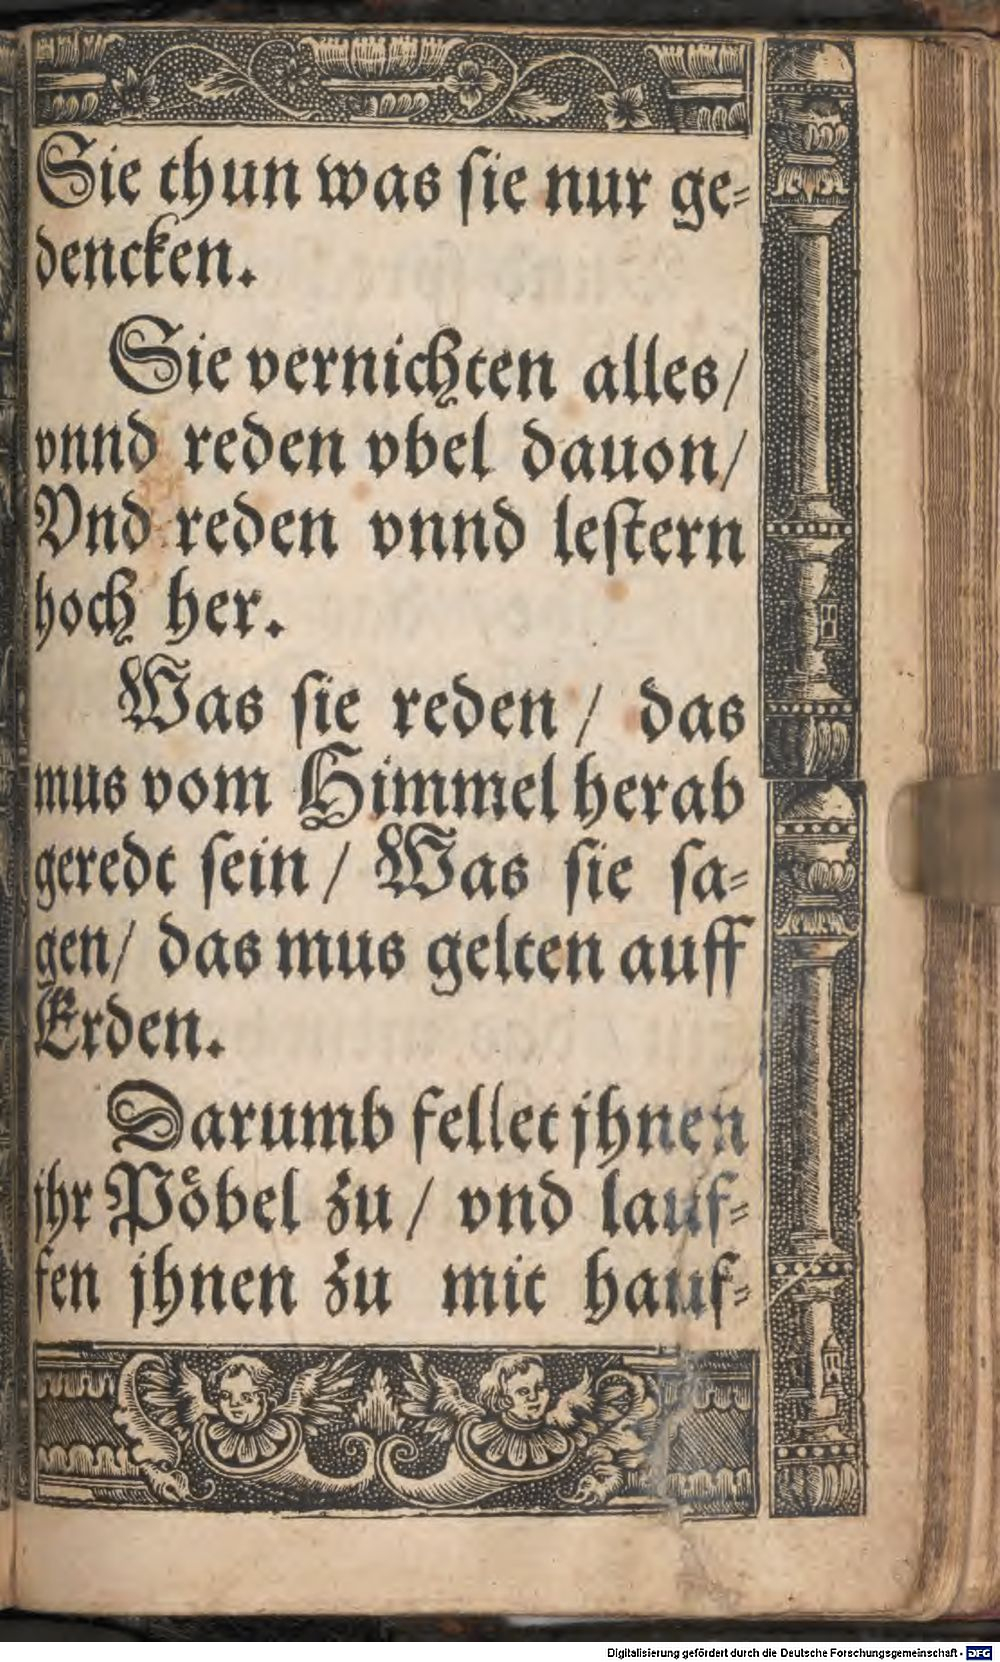 Sie thun was sie nur ge-
dencken.
Sie vernichten alles/
vnnd reden vbel dauon/
Vnd reden vnnd lestern
hoch her.
Was sie reden / das
mus vom Himmel herab
geredt sein / Was sie sa-
gen/ das mus gelten auff
Erden.
Darumb fellet jhnen
jhr Pöbel zu / vnd lauf-
fen jhnen zu mit hauf-
Digitalisierung gefördert durch die Deutsche Forschungsgemeinschaft - DFG